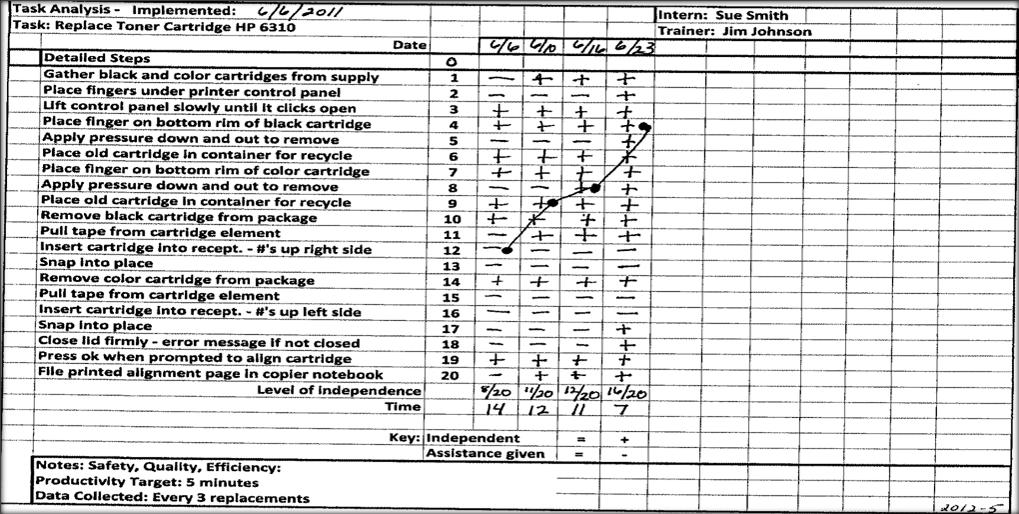 Task Analysis - Implemented: 6/6/2011 Intern: Sue Smith
Task: Replace Toner Cartridge HP 6310 Trainer: Jim Johnson
Date 6/6 6/10 6/16 6/23
Detailed Steps 0
Gather black and color cartridges from supply 1 — + + +
Place fingers under printer control panel 2 — — — +
Lift control panel slowly until it clicks open 3 + + + +
Place finger on bottom rim of black cartridge 4 + + + +
Apply pressure down and out to remove 5 — — — +
Place old cartridge in container for recycle 6 + + + +
Place finger on bottom rim of color cartridge 7 + + + +
Apply pressure down and out to remove 8 — — + +
Place old cartridge in container for recycle 9 + + + +
Remove black cartridge from package 10 + + + +
Pull tape from cartridge element 11 — + + +
Insert cartridge into recept. - #'s up right side 12 — — — —
Snap into place 13 — — — —
Remove color cartridge from package 14 + + + +
Pull tape from cartridge element 15 — — — —
Insert cartridge into recept. - #'s up left side 16 — — — —
Snap into place 17 — — — +
Close lid firmly - error message if not closed 18 — — — +
Press ok when prompted to align cartridge 19 + + + +
File printed alignment page in copier notebook 20 — + + +
Level of independence 8/20 11/20 12/20 16/20
Time 14 12 11 7
Key: Independent = +
Assistance given = -
Notes: Safety, Quality, Efficiency:
Productivity Target: 5 minutes
Data Collected: Every 3 replacements
2012-5